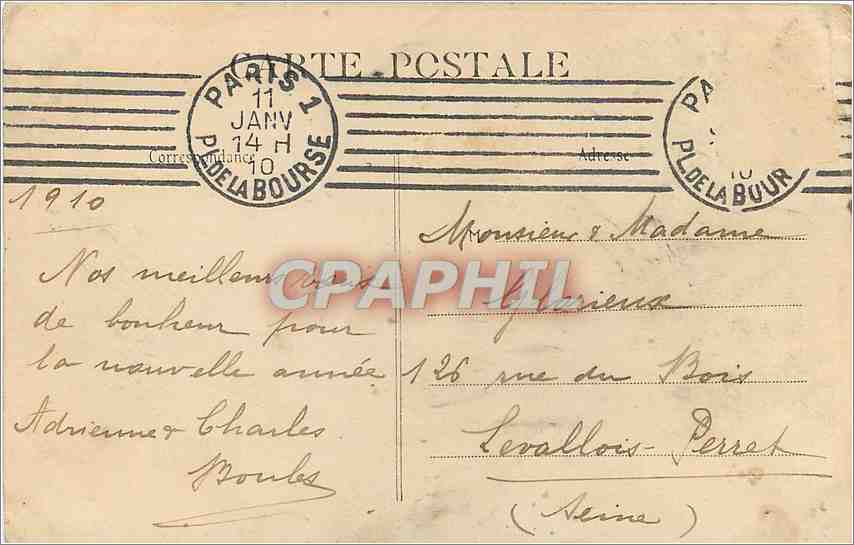 CARTE POSTALE
PARIS 1
11
JANV
14 H
10
PL. DE LA BOURSE
PA
10
PL. DE LA BOUR
Correspondance
Adresse
1910
Nos meilleurs vœux
de bonheur pour
la nouvelle année
Adrienne & Charles
Boules
Monsieur & Madame
Glorieux
126 rue du Bois
Levallois-Perret
(Seine)
CPAPHIL